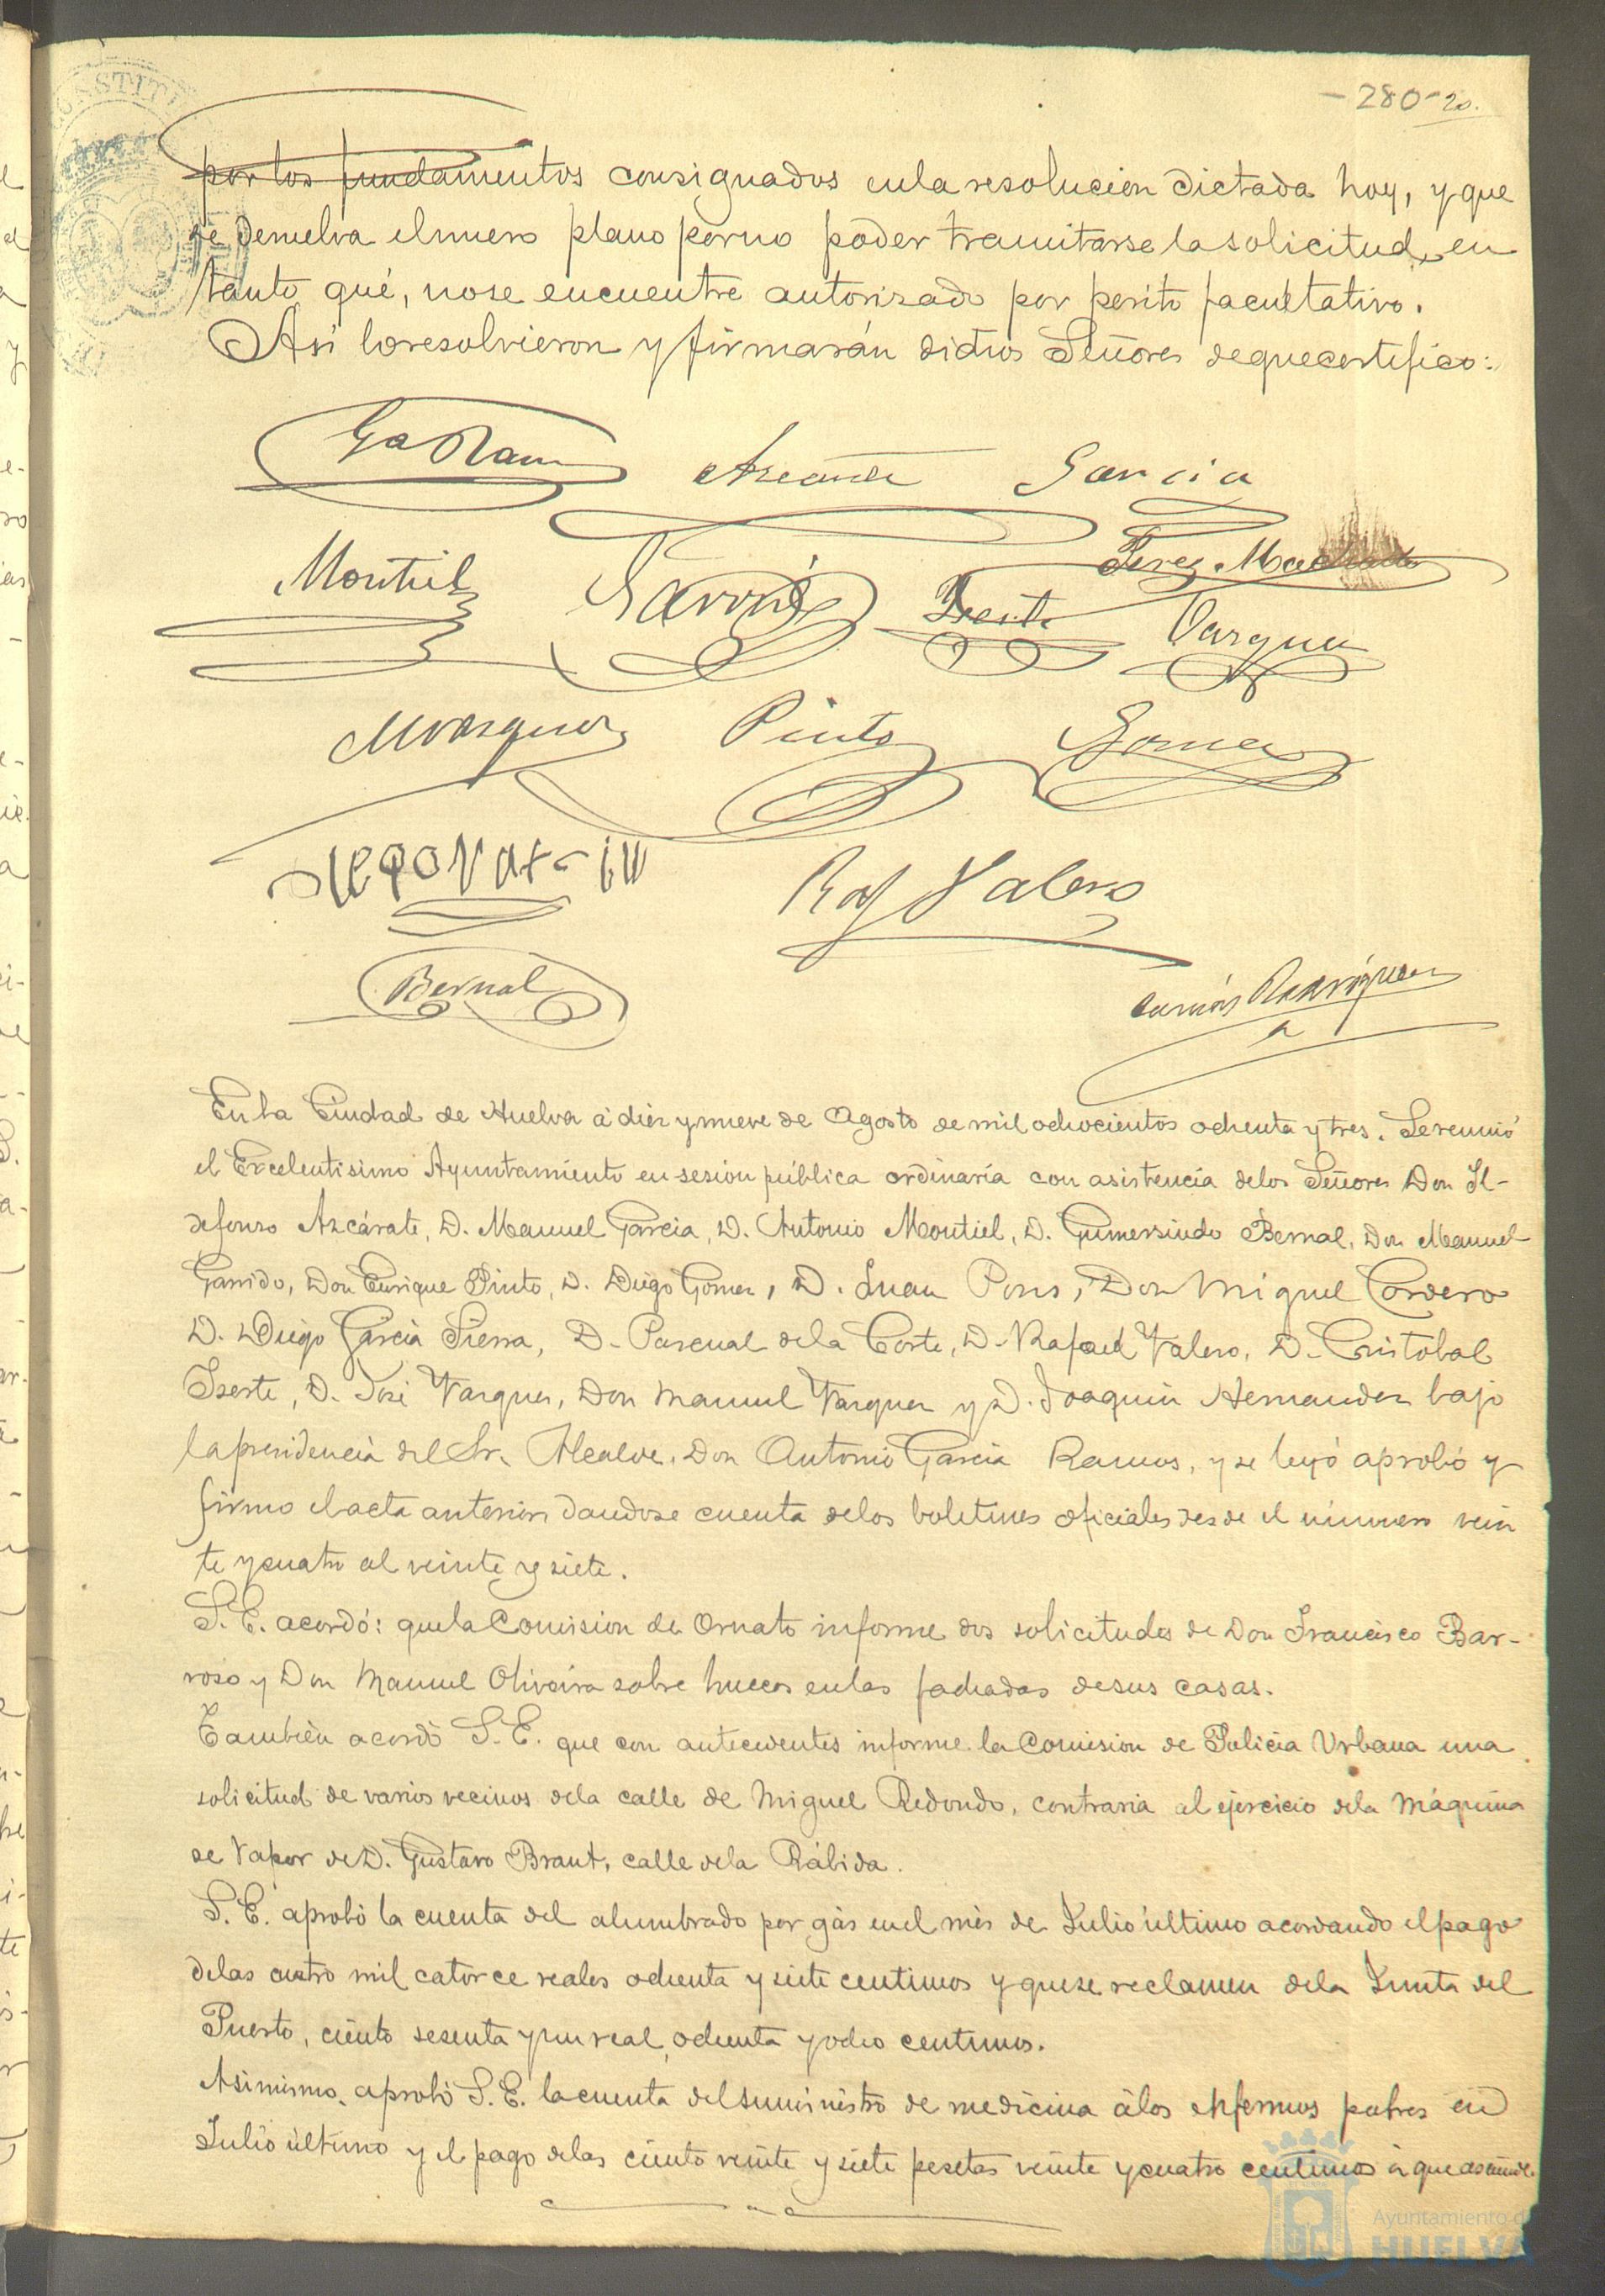 - 280 - 20.
CONSTITU
por los fundamentos consignados en la resolucion dictada hoy, y que
se devuelva el nuevo plano por no poder tramitarse la solicitud, en
tanto qué, no se encuentre autorizado por perito facultativo.
Asi lo resolvieron y firmarán dichos Señores de que certifico:
Ga Ram
Azcárate Garcia
Montiel Garrido Iserte Perez Machado
Vazquez
M Vazquez Pinto Gomez
Raf Valero
Bernal
Rodríguez
En la Ciudad de Huelva á diez y nueve de Agosto de mil ochocientos ochenta y tres. Se reunió
el Excelentisimo Ayuntamiento en sesion pública ordinaria con asistencia de los Señores Don Il-
defonso Azcárate, D. Manuel Garcia, D. Antonio Montiel, D. Gumersindo Bernal, Don Manuel
Garrido, Don Enrique Pinto, D. Diego Gomez, D. Juan Pons, Don Miguel Cordero
D. Diego Garcia Sierra, D. Pascual de la Corte, D. Rafael Valero, D. Cristobal
Iserte, D. José Vazquez, Don Manuel Vazquez y D. Joaquin Hernandez bajo
la presidencia del Sr. Alcalde, Don Antonio Garcia Ramos, y se leyó aprobó y
firmo el acta anterior dandose cuenta de los boletines oficiales desde el número vein
te y cuatro al veinte y siete.
S. E. acordó: que la Comision de Ornato informe dos solicitudes de Don Francisco Bar-
roso y Don Manuel Oliveira sobre huecos en las fachadas de sus casas.
También acordó S. E. que con antecedentes informe la Comision de Policia Urbana una
solicitud de varios vecinos de la calle de Miguel Redondo, contraria al ejercicio de la Máquina
de Vapor de D. Gustavo Braut, calle de la Rábida.
S. E. aprobó la cuenta del alumbrado por gás en el mes de Julio último acordando el pago
de las cuatro mil catorce reales ochenta y siete centimos y que se reclamen de la Junta del
Puerto, ciento sesenta y un real, ochenta y ocho centimos.
Asimismo, aprobó S. E. la cuenta del suministro de medicina á los enfermos pobres en
Julio último y el pago de las ciento veinte y siete pesetas veinte y cuatro centimos á que asciende.
Ayuntamiento d
HUELVA